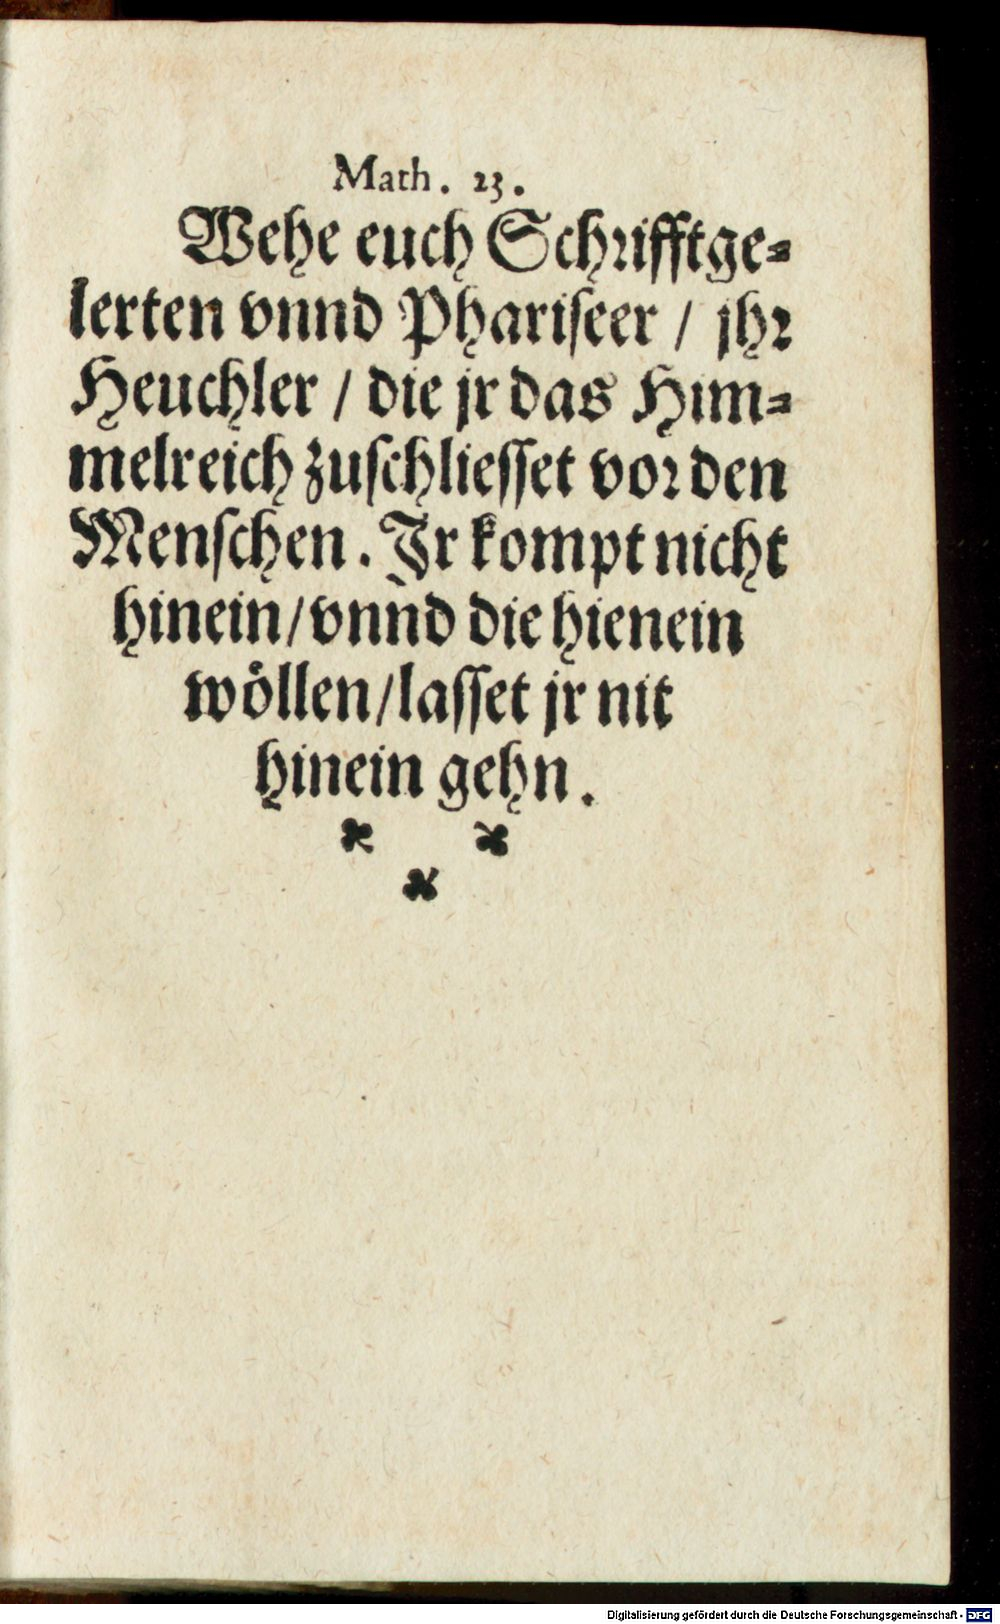 Math. 23.
Wehe euch Schrifftge⸗
lerten vnnd Phariseer / jhr
Heuchler / die jr das Him⸗
melreich zuschliesset vor den
Menschen. Jr kompt nicht
hinein / vnnd die hienein
wöllen / lasset jr nit
hinein gehn.
Digitalisierung gefördert durch die Deutsche Forschungsgemeinschaft - DFG